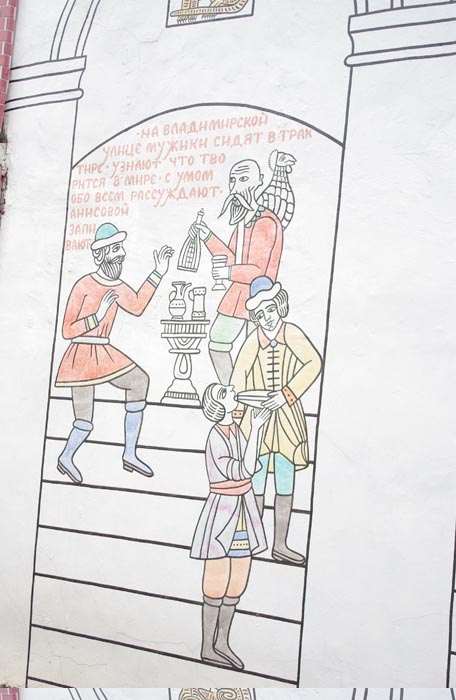 ·НА ВЛАДИМИРСКОЙ
УЛИЦЕ МУЖИКИ СИДЯТ В ТРАК
ТИРЕ· УЗНАЮТ ЧТО ТВО
РИТСЯ В МИРЕ· С УМОМ
ОБО ВСЕМ РАССУЖДАЮТ·
АНИСОВОЙ
ЗАПИ
ВАЮТ